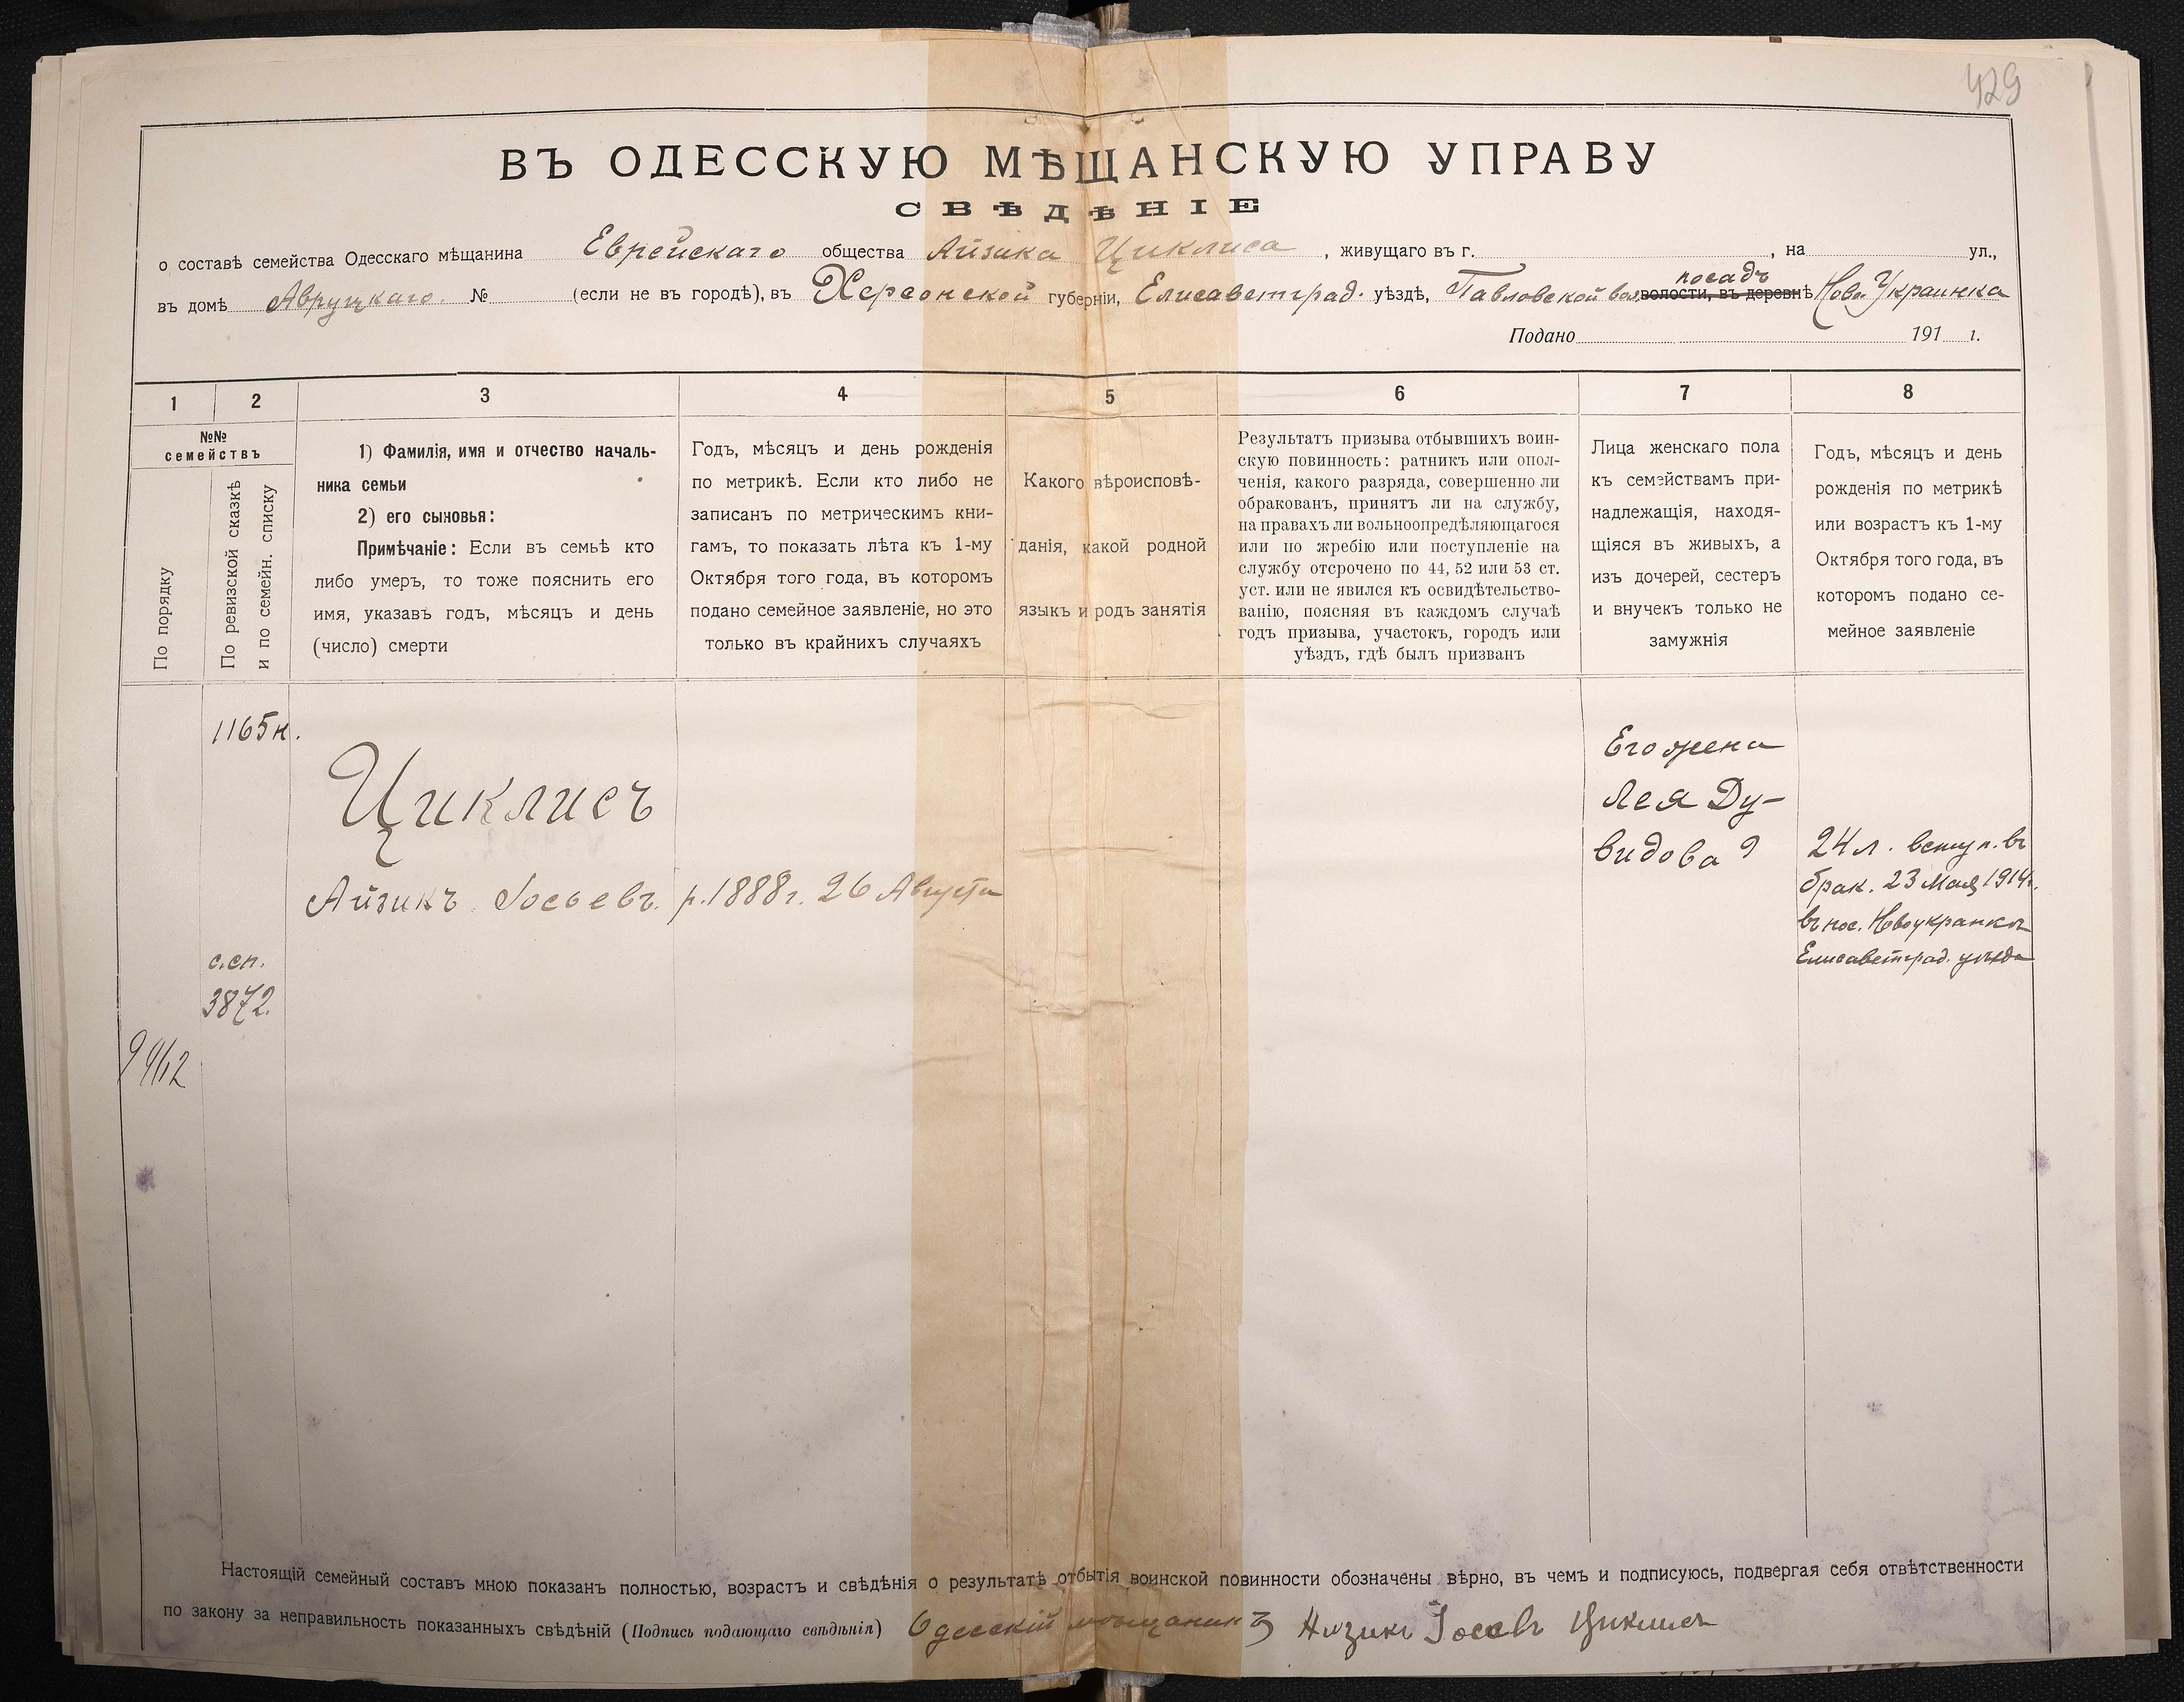 429
ВЪ ОДЕССКУЮ МѢЩАНСКУЮ УПРАВУ
СВѢДѢНІЕ
о составѣ семейства Одесскаго мѣщанина Еврейскаго общества Айзика Циклиса, живущаго въ г. , на ул.,
посадъ
въ домѣ Авруцкаго. № (если не въ городѣ), въ Херсонской губерніи, Елисаветград. уѣздѣ, Павловской вол. волости, въ деревнѣ Ново Украинка
Подано 191 г.
1 2 3 4 5 6 7 8
№№
семействъ
По порядку
По ревизской сказкѣ
и по семейн. списку
1) Фамилія, имя и отчество началь-
ника семьи
2) его сыновья:
Примѣчаніе: Если въ семьѣ кто
либо умеръ, то тоже пояснить его
имя, указавъ годъ, мѣсяцъ и день
(число) смерти
Годъ, мѣсяцъ и день рожденія
по метрикѣ. Если кто либо не
записанъ по метрическимъ кни-
гамъ, то показать лѣта къ 1-му
Октября того года, въ которомъ
подано семейное заявленіе, но это
только въ крайнихъ случаяхъ
Какого вѣроисповѣ-
данія, какой родной
языкъ и родъ занятія
Результатъ призыва отбывшихъ воин-
скую повинность: ратникъ или опол-
ченія, какого разряда, совершенно ли
обракованъ, принятъ ли на службу,
на правахъ ли вольноопредѣляющагося
или по жребію или поступленіе на
службу отсрочено по 44, 52 или 53 ст.
уст. или не явился къ освидѣтельство-
ванію, поясняя въ каждомъ случаѣ
годъ призыва, участокъ, городъ или
уѣздъ, гдѣ былъ призванъ
Лица женскаго пола
къ семействамъ при-
надлежащія, находя-
щіяся въ живыхъ, а
изъ дочерей, сестеръ
и внучекъ только не
замужнія
Годъ, мѣсяцъ и день
рожденія по метрикѣ
или возрастъ къ 1-му
Октября того года, въ
которомъ подано се-
мейное заявленіе
1165н.
Циклисъ
Айзикъ Іосьевъ. р. 1888 г. 26 Августа
с.сп.
3872.
Его жена
Лея Ду-
видова
24 л. вступ. въ
брак. 23 Мая 1914г.
въ пос. Новоукраинкѣ
Елисаветград. уѣзда
Настоящій семейный составъ мною показанъ полностью, возрастъ и свѣдѣнія о результатѣ отбытія воинской повинности обозначены вѣрно, въ чемъ и подписуюсь, подвергая себя отвѣтственности
по закону за неправильность показанныхъ свѣдѣній (Подпись подающаго свѣдѣнія) Одесскій мѣщанинъ Айзикъ Іосевъ Циклисъ